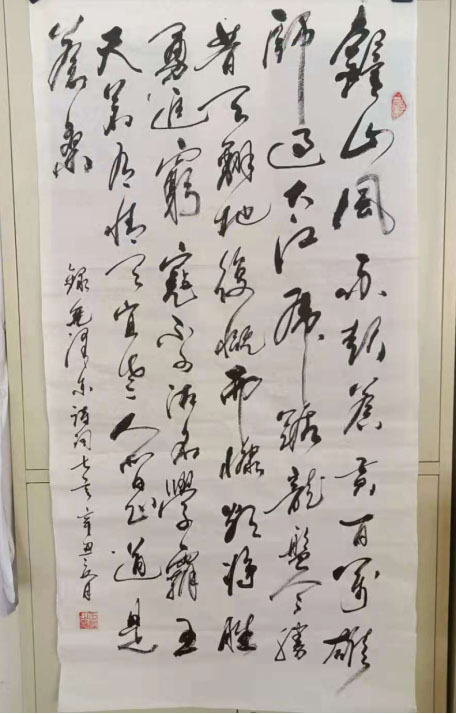 鐘山風雨起蒼黃百萬雄
師過大江虎踞龍盤今勝
昔天翻地復慨而慷將勝
勇追窮寇不可沽名學霸王
天若有情天宜老人間正道是
蒼桑
錄毛澤東詩詞七言辛丑月